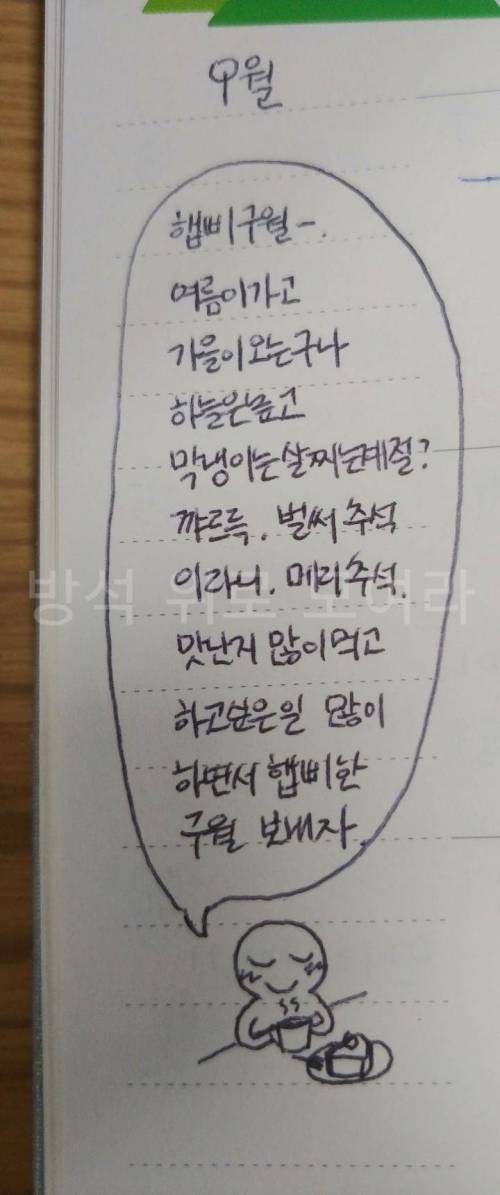 9월
햅삐구월-.
여름이가고
가을이오는구나
하늘은높고
막냉이는살찌는계절?
꺄르륵. 벌써 추석
이라니. 메리추석.
방석 위로 모여라
맛난거 많이먹고
하고싶은일 많이
하면서 햅삐한
구월 보내자.